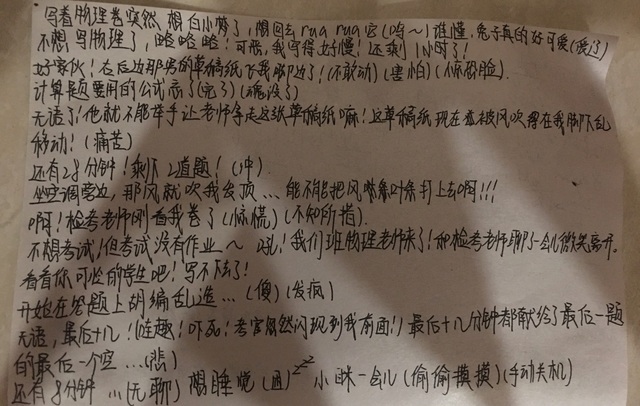 写着物理卷突然想白小梦了，想回去rua rua它(呜~)谁懂，兔子真的好可爱(爱了)
不想写物理了，略略略！可恶，我写得好慢！还剩1小时了！
好家伙！右后边那男的草稿纸飞我脚边了！(不敢动)(害怕)(惊恐脸).
计算题要用的公式忘了(完了)(魂没了)
无语了！他就不能举手让老师拿走这张草稿纸嘛！这草稿纸现在在被风吹得在我脚下乱
移动！(痛苦)
还有28分钟！剩下2道题！(冲)
坐空调旁边，那风就吹我发顶…能不能把风嘴条叶条打上去啊!!!
啊！检考老师刚看我卷了(惊慌)(不知所措).
不想考试！但考试没有作业~吼！我们班物理老师来了！和检考老师聊了一会儿微笑离开.
看看你可怜的学生吧！写不下去了！
开始在答题上胡编乱造…(傻)(发疯)
无语，最后十几！(谁趣！吓死！考官居然闪现到我前面!)最后十几分钟都献给了最后一题
的最后一个空…(悲)
还有8分钟…(无聊)想睡觉(困)zzz小眯一会儿(偷偷摸摸)(手动关机)